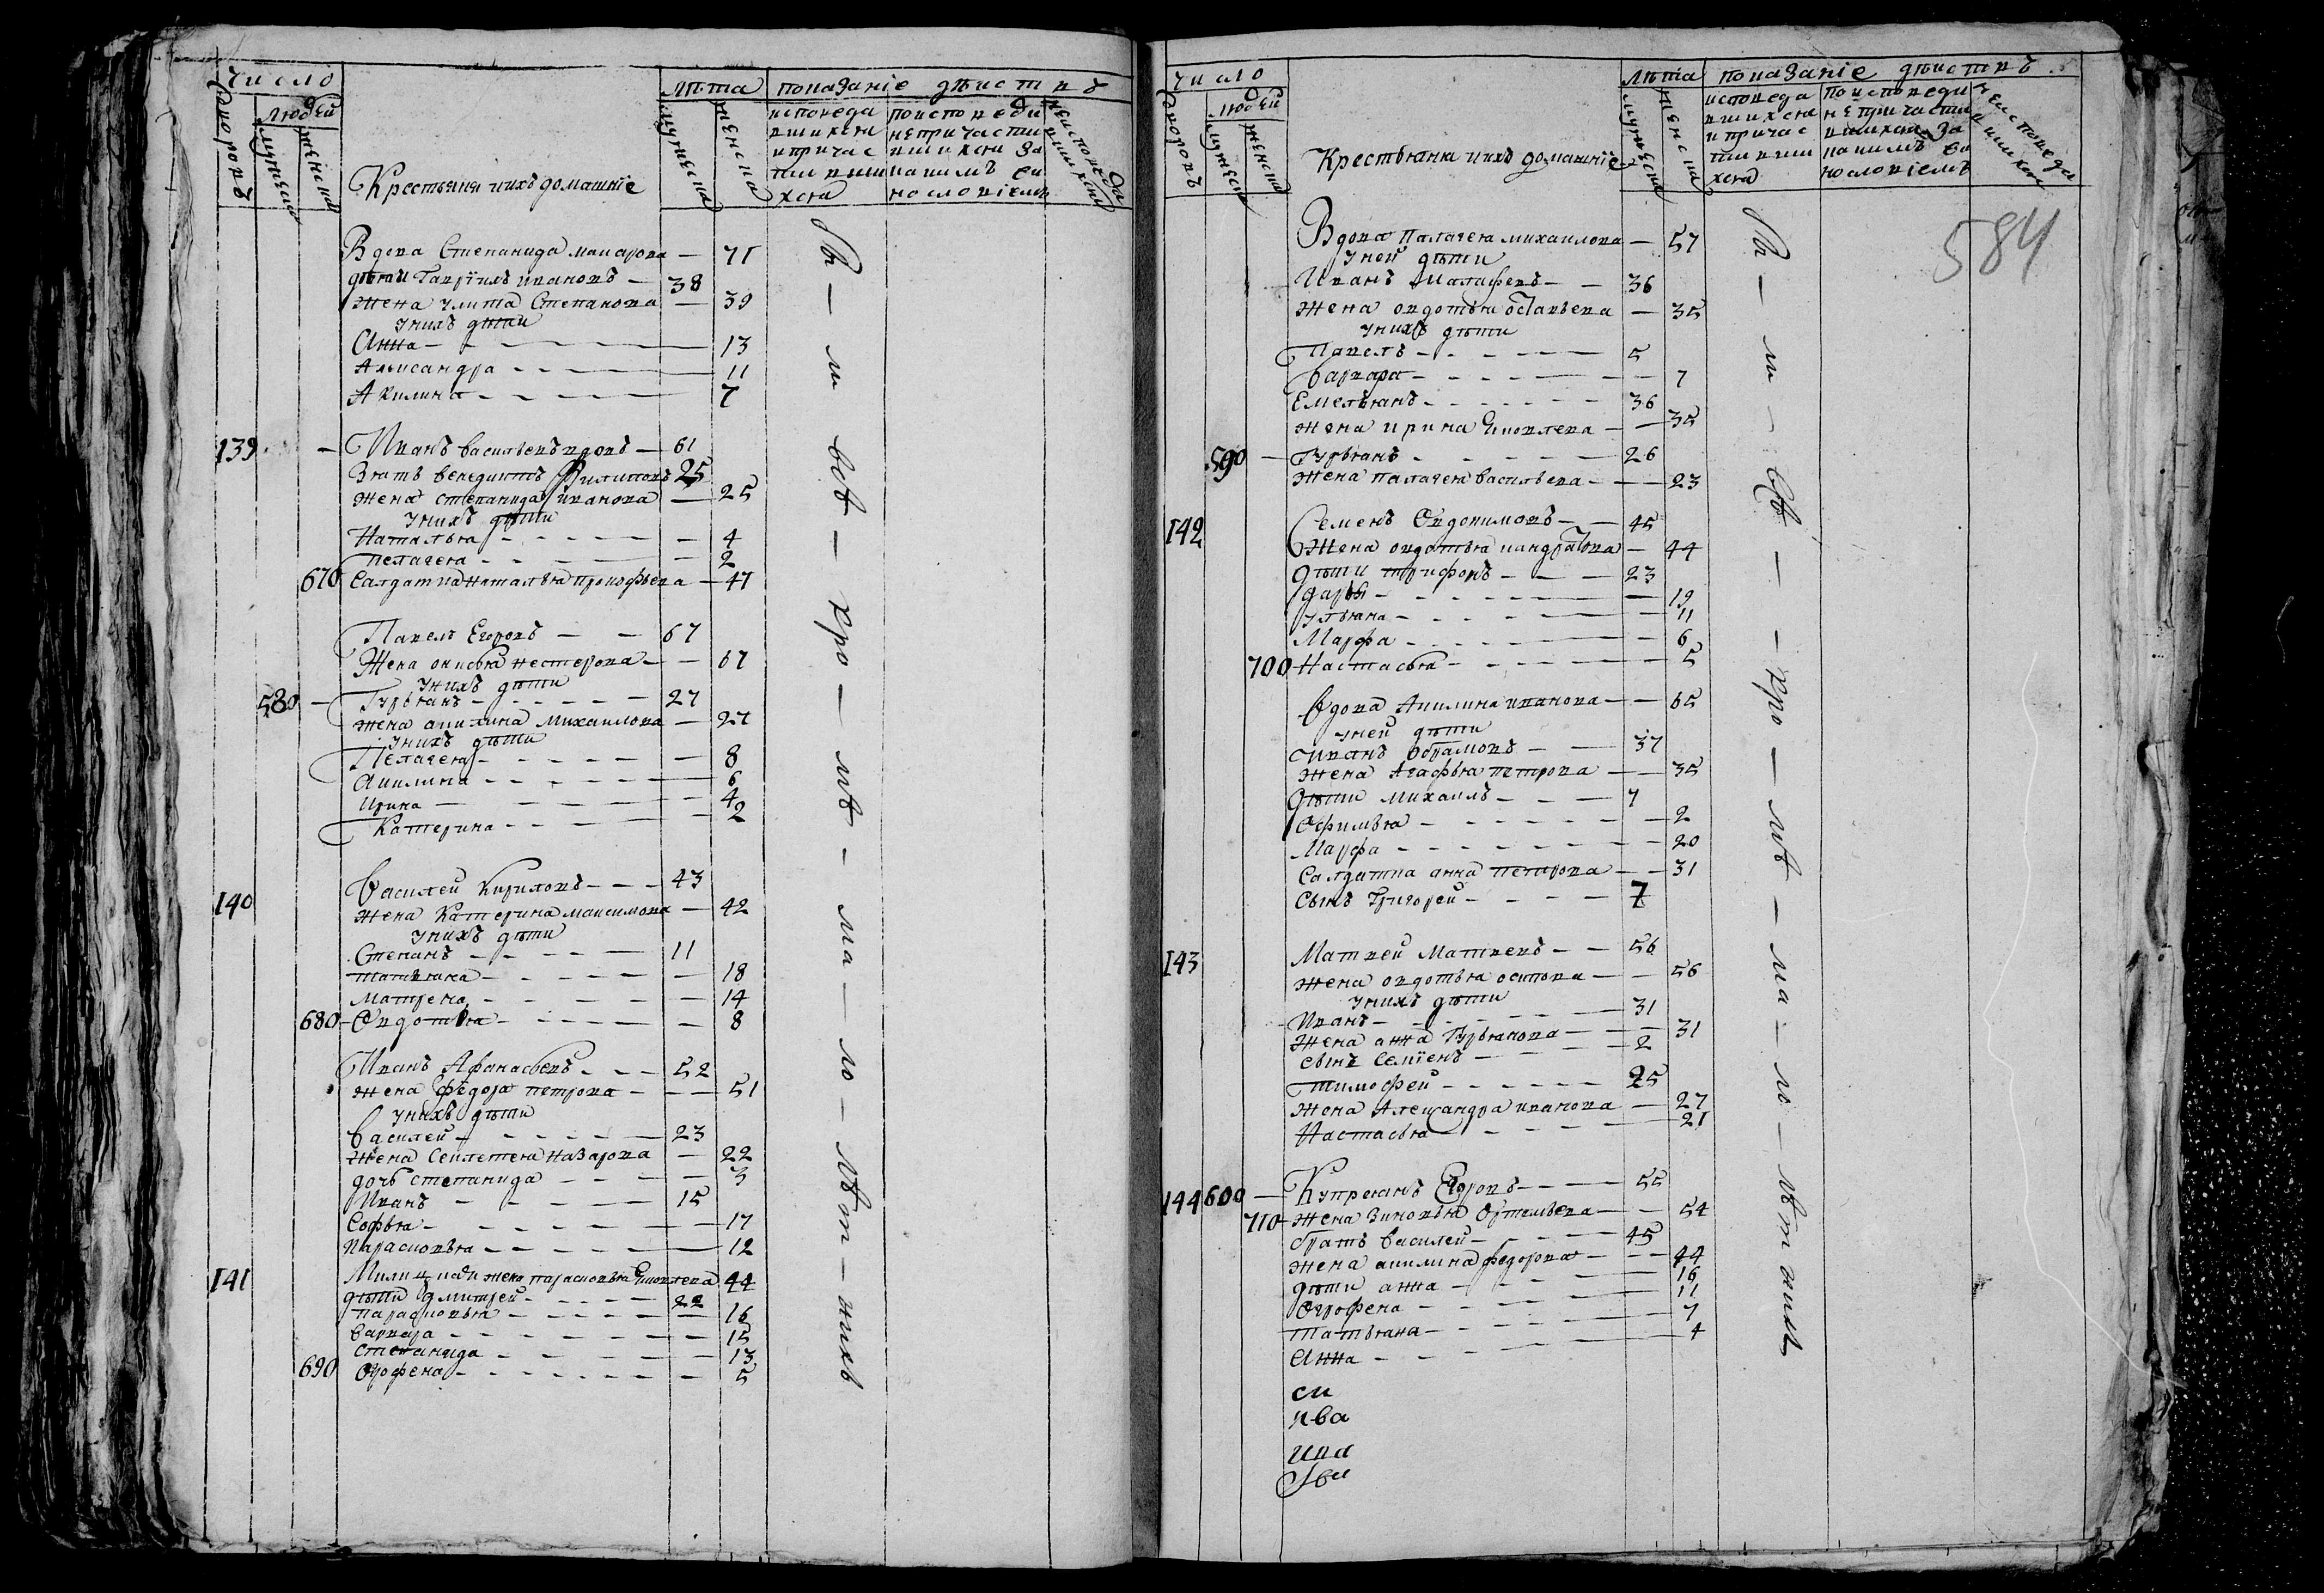 число
людей
дворовъ
мужеска
женска
Крестьяня и ихъ домашніе
лѣта
мужеска
женска
показаніе дѣиствъ
исповеда
вшихся
и причас
тивши
хся
поисповеди
непричасти
вшихся за
какимъ ви
нословіемъ
неисповеда
вшихся
Вдова Степанида макарова — 71
дѣти Гаврїилъ ивановъ — 38
жена улита Степанова — 39
у нихъ дѣти
Анна — 13
Алѣксандра — 11
Акилина — 7
139 — Иванъ васильевъ вдовъ — 61
Зять венедиктъ Филиповъ 25
жена степанида иванова — 25
у нихъ дѣти
Наталья — 4
пелагея — 2
670 Салдатка наталья прокофьева — 47
Павелъ Егоровъ — 67
Жена онисья нестерова — 67
у нихъ дѣти
580 — Гурьянъ — 27
жена акилина михаилова — 27
у нихъ дѣти
Пелагея — 8
Акилина — 6
Ирина — 4
Катерина — 2
140 Василеи Кириловъ — 43
жена Катерина максимова — 42
у нихъ дѣти
Степанъ — 11
татьяна — 18
Матрена — 14
680 — Овдотья — 8
Иванъ Афанасьевъ — 52
жена федора петрова — 51
у нихъ дѣти
Василеи — 23
жена Секлетея назарова — 22
дочь степанида — 3
Иванъ — 15
Софья — 17
Парасковья — 12
141 жена парасковья яковлева 44
дѣти дмитреи — 22
парасковья — 16
варвара — 15
степанида — 13
690 Огрофена — 5
число
людей
дворовъ
мужеска
женска
Крестьяня и ихъ домашніе
лѣта
мужеска
женска
показаніе дѣиствъ
исповеда
вшихся
и причас
тивши
хся
поисповеди
непричасти
вшихся за
какимъ ви
нословіемъ
неисповеда
вшихся
584
Вдова Палагея михаилова — 57
у ней дѣти
Иванъ Малафеевъ — 36
жена овдотья остапьева — 35
у нихъ дѣти
Павелъ — 5
варвара — 7
Емельянъ — 36
жена ирина яковлева — 35
590 — Гурьянъ — 26
жена палагея васильева — 23
142 Семенъ Овдокимовъ — 45
Жена овдотья кандратова — 44
дѣти трифонъ — 23
дарья — 19
ульяна — 11
Марфа — 6
700 Настасья — 5
вдова Акилина иванова — 65
у ней дѣти
Иванъ обрамовъ — 37
жена Агафья петрова — 35
дѣти михаилъ — 7
Офимья — 2
Марфа — 20
Салдатка анна петрова — 31
сынъ Григореи — 7
143 Матвеи Матвеевъ — 56
жена овдотья осипова — 56
у нихъ дѣти
Иванъ — 31
жена анна Гурьянова — 31
сынъ Семенъ — 2
тимофеи — 25
жена Александра иванова — 27
Настасья — 21
144 600 — Купреянъ Егоровъ — 55
710 жена зиновья Ортемьева — 54
братъ василеи — 45
жена акилина федорова — 44
дѣти анна — 16
Огрофена — 11
татьяна — 7
Анна — 4